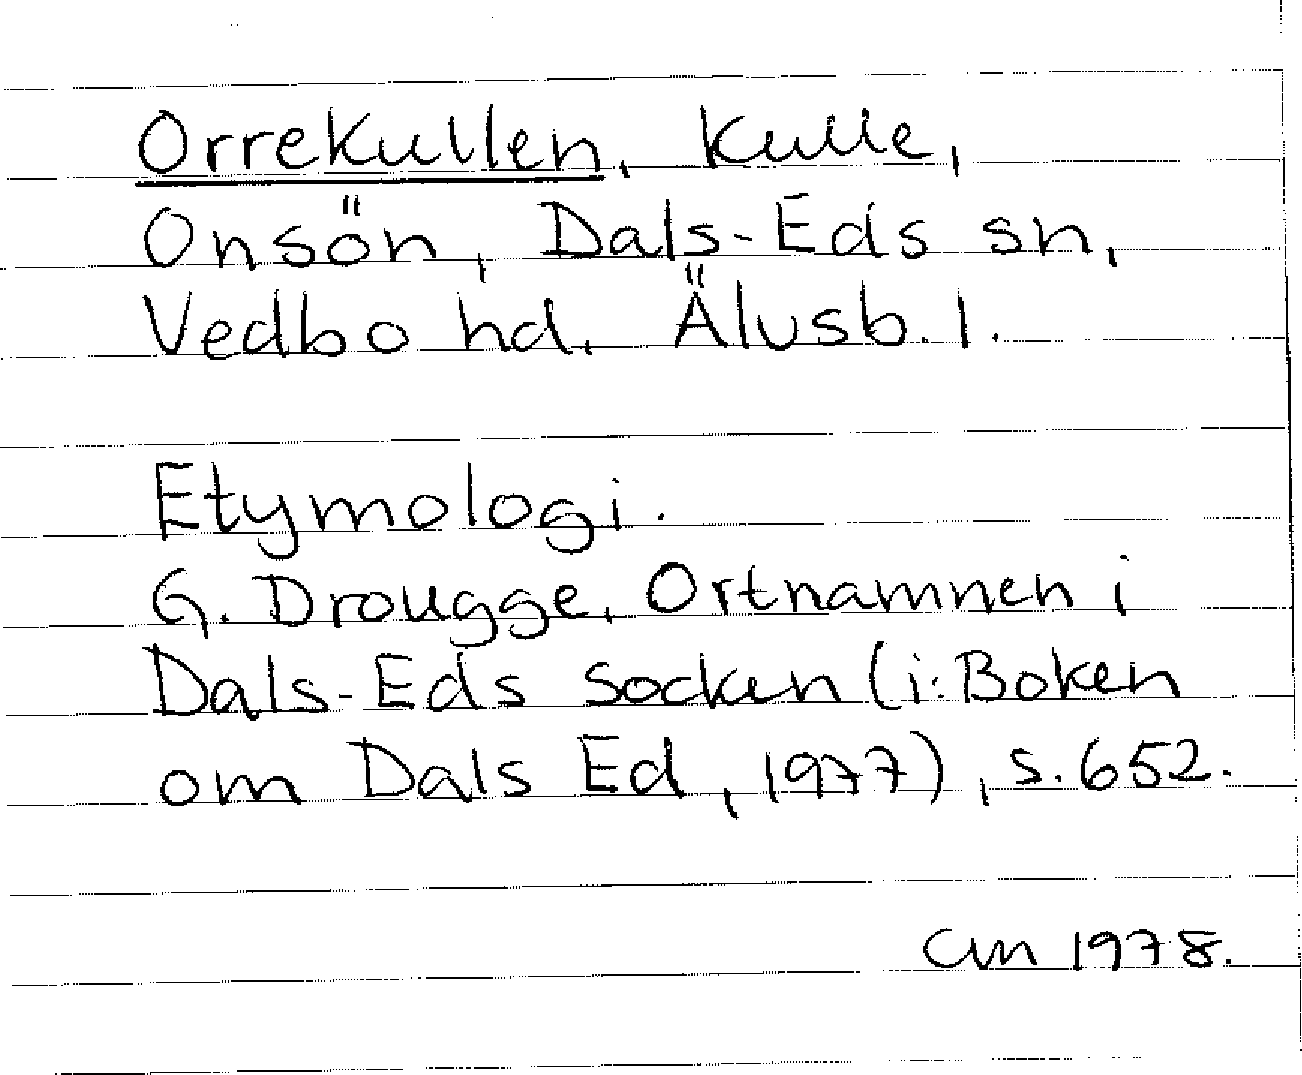 Orrekullen, kulle,
Onsön, Dals-Eds sn,
Vedbo hd. Älvsb. l.
Etymologi.
G. Drougge, Ortnamnen i
Dals-Eds socken (i: Boken
om Dals Ed, 1977), s. 652.
1978.